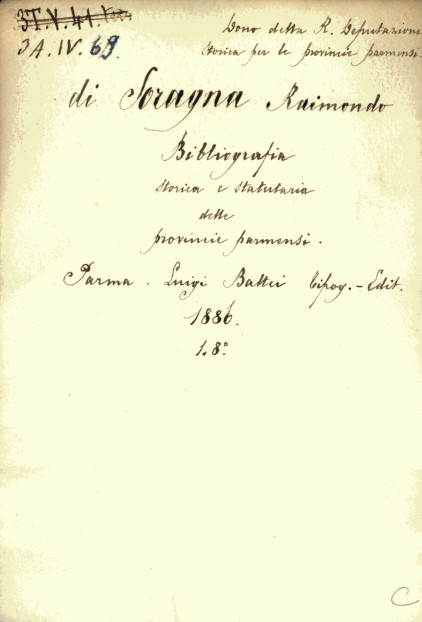 3T.V.41.
3A.IV.69.
Dono della R. Deputazione
storica per le provincie parmensi.
di Soragna Raimondo
Bibliografia
storica e statutaria
delle
provincie parmensi.
Parma. Luigi Battei tipog.-Edit.
1886.
1.8°
C